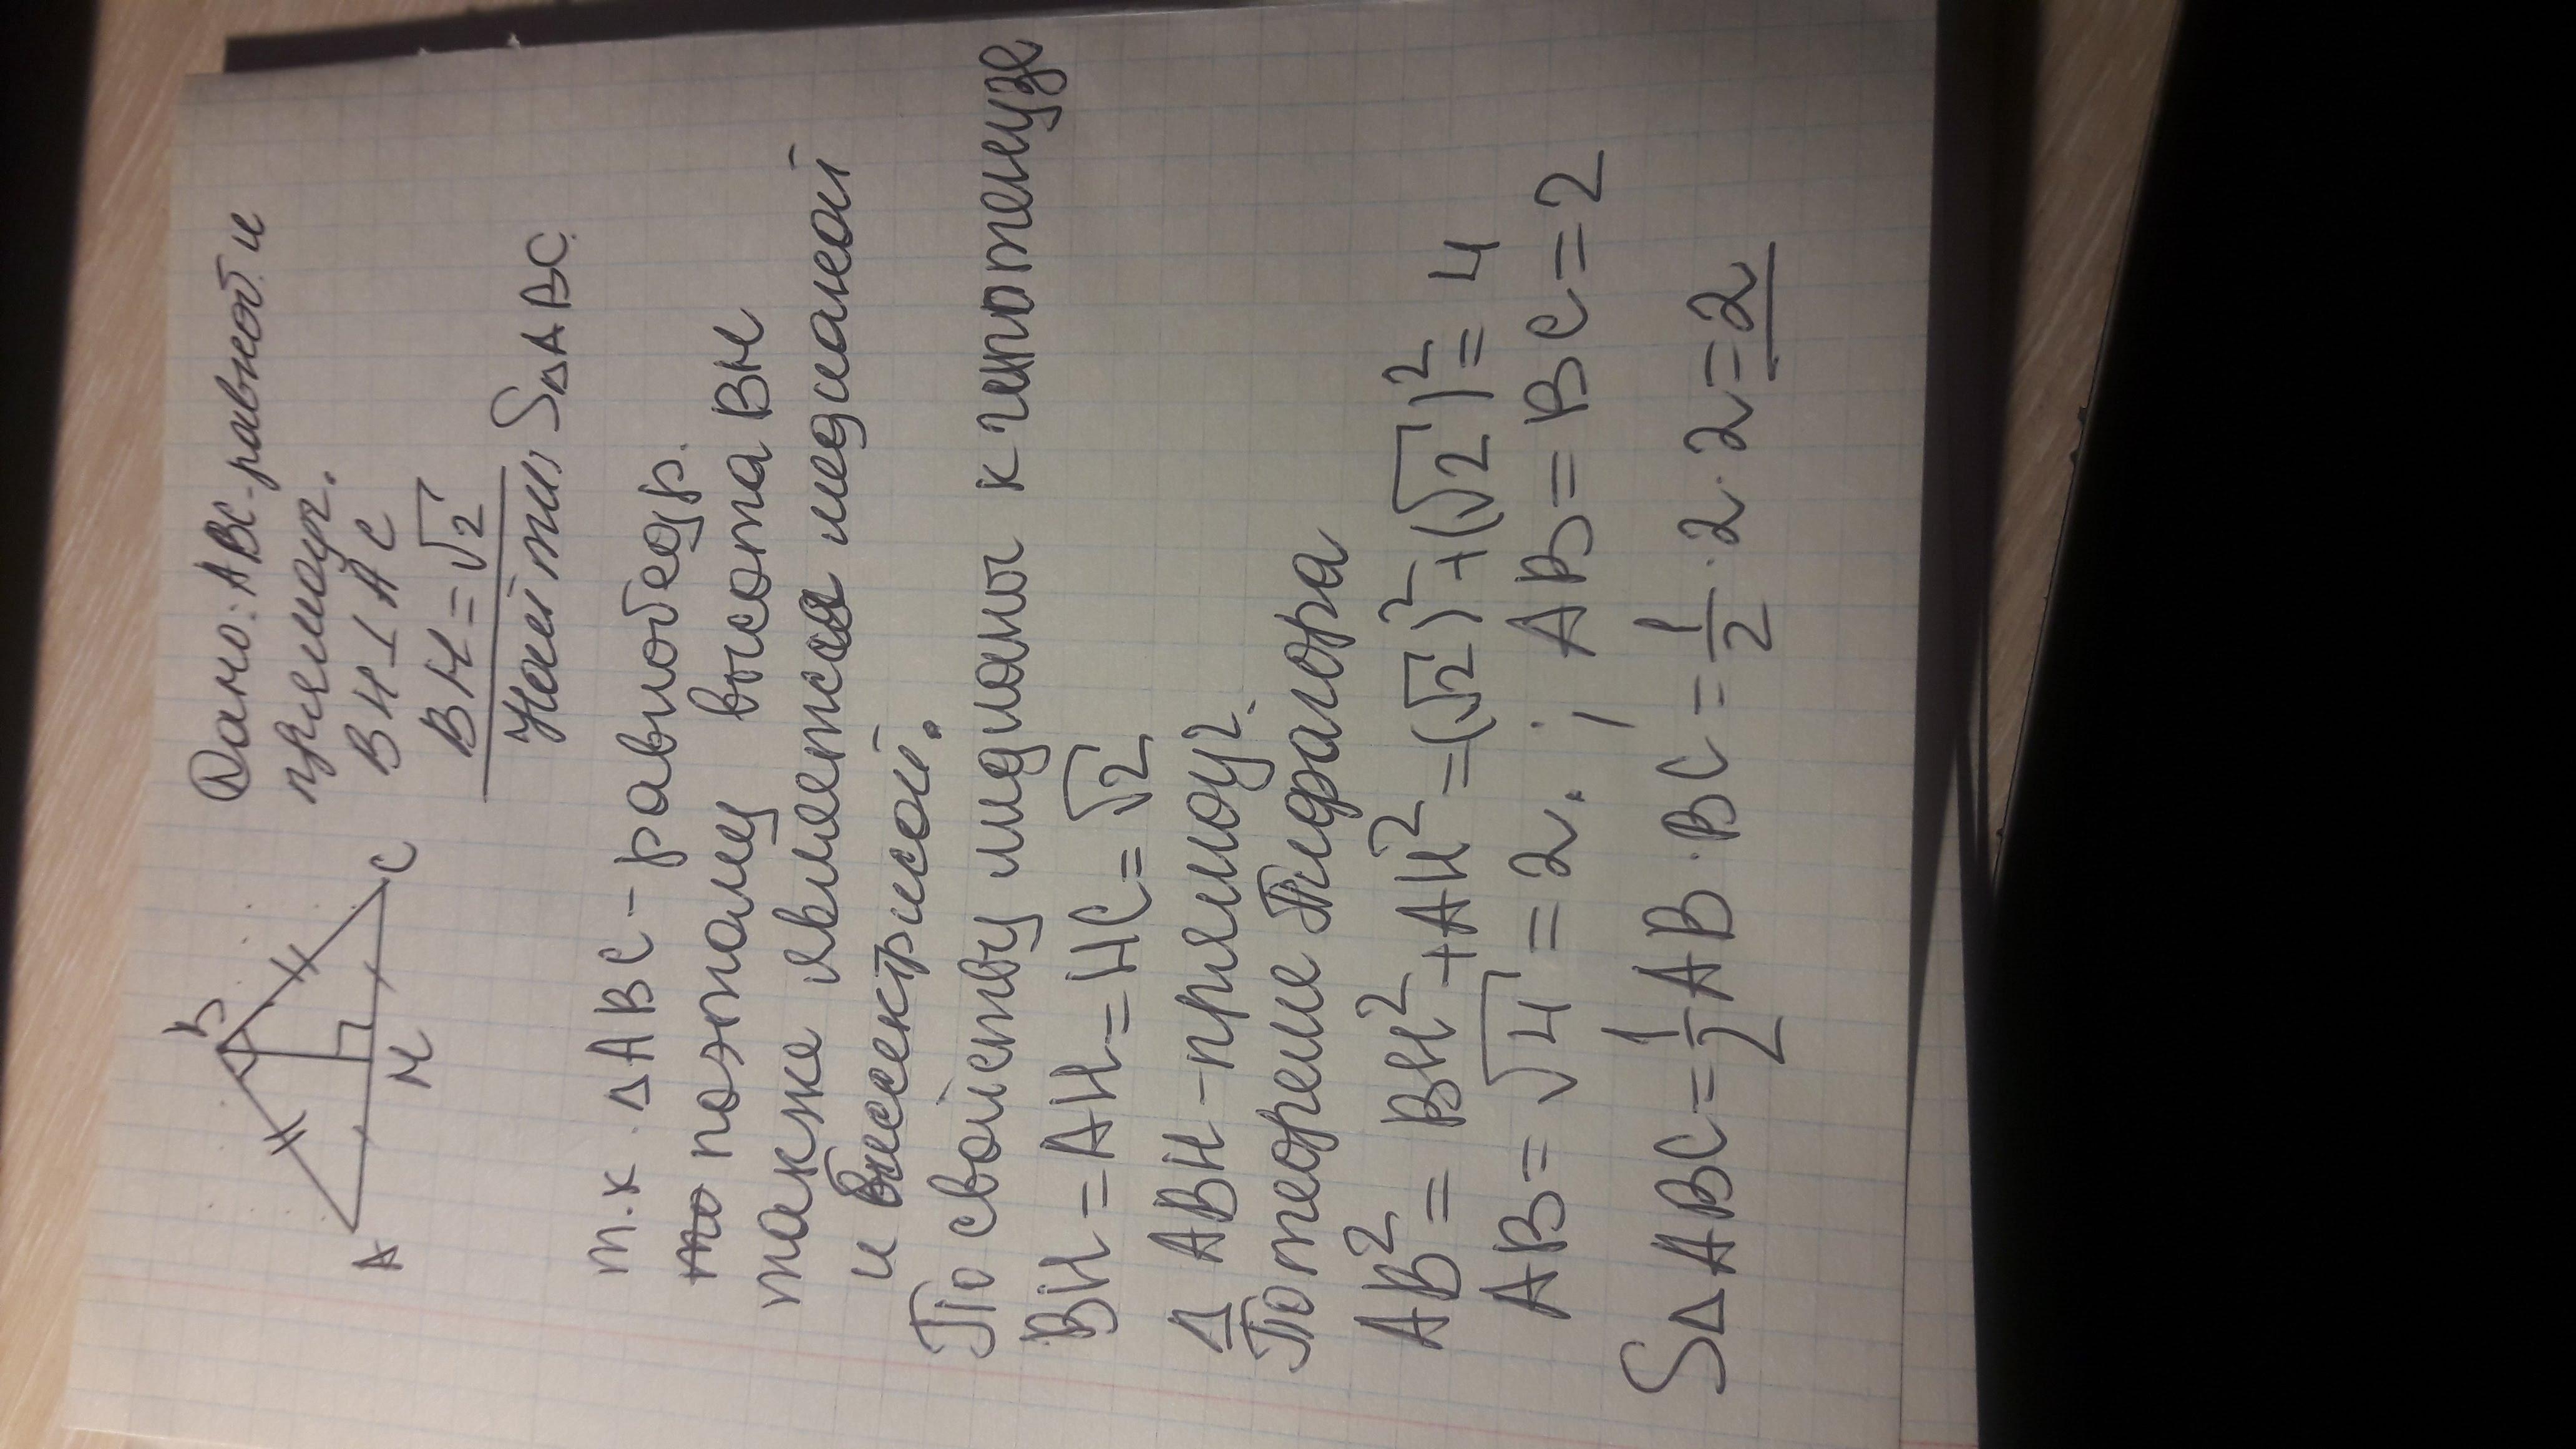 B
A
H
C
Дано: ABC-равноб. и
прямоуг.
BH ⊥ AC
BH = √2
Найти S△ABC.
т.к. △ABC - равнобедр.
то поэтому высота BH
также является медианой
и биссектрисой.
По свойству медианы к гипотенузе
BH = AH = HC = √2
△ ABH - прямоуг.
По теореме Пифагора
AB² = BH² + AH² = (√2)² + (√2)² = 4
AB = √4 = 2. ; AB = BC = 2
S△ABC = 1/2 AB · BC = 1/2 · 2 · 2 = 2